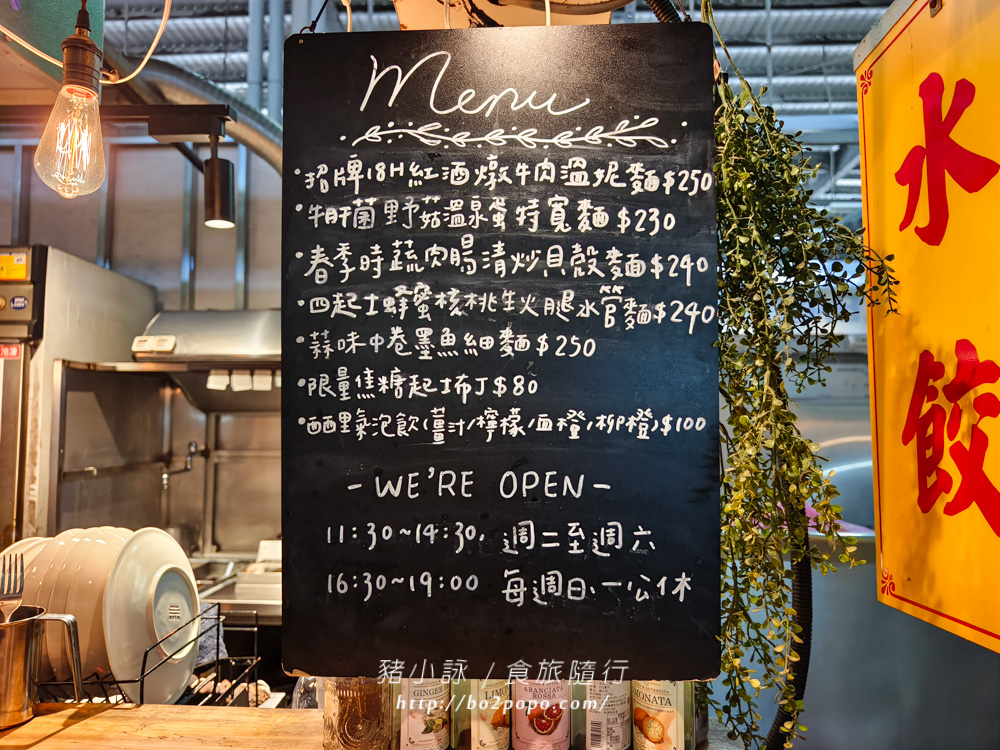 Menu
·招牌18H紅酒燉牛肉溫妮麵$250
·牛肝菌野菇溫泉蛋特寬麵$230
·春季時蔬肉腸清炒貝殼麵$240
·四起士蜂蜜核桃生火腿水管麵$240
·蒜味中卷墨魚細麵$250
·限量焦糖起士布丁$80
·西西里氣泡飲(薑汁/檸檬/血橙/柳橙)$100
-WE'RE OPEN-
11:30~14:30, 週二至週六
16:30~19:00 每週日、一公休
水餃
豬小詠 / 食旅隨行
http://bo2popo.com/
GINGER
LIMO
ARANCIATA
ROSSA
MONATA